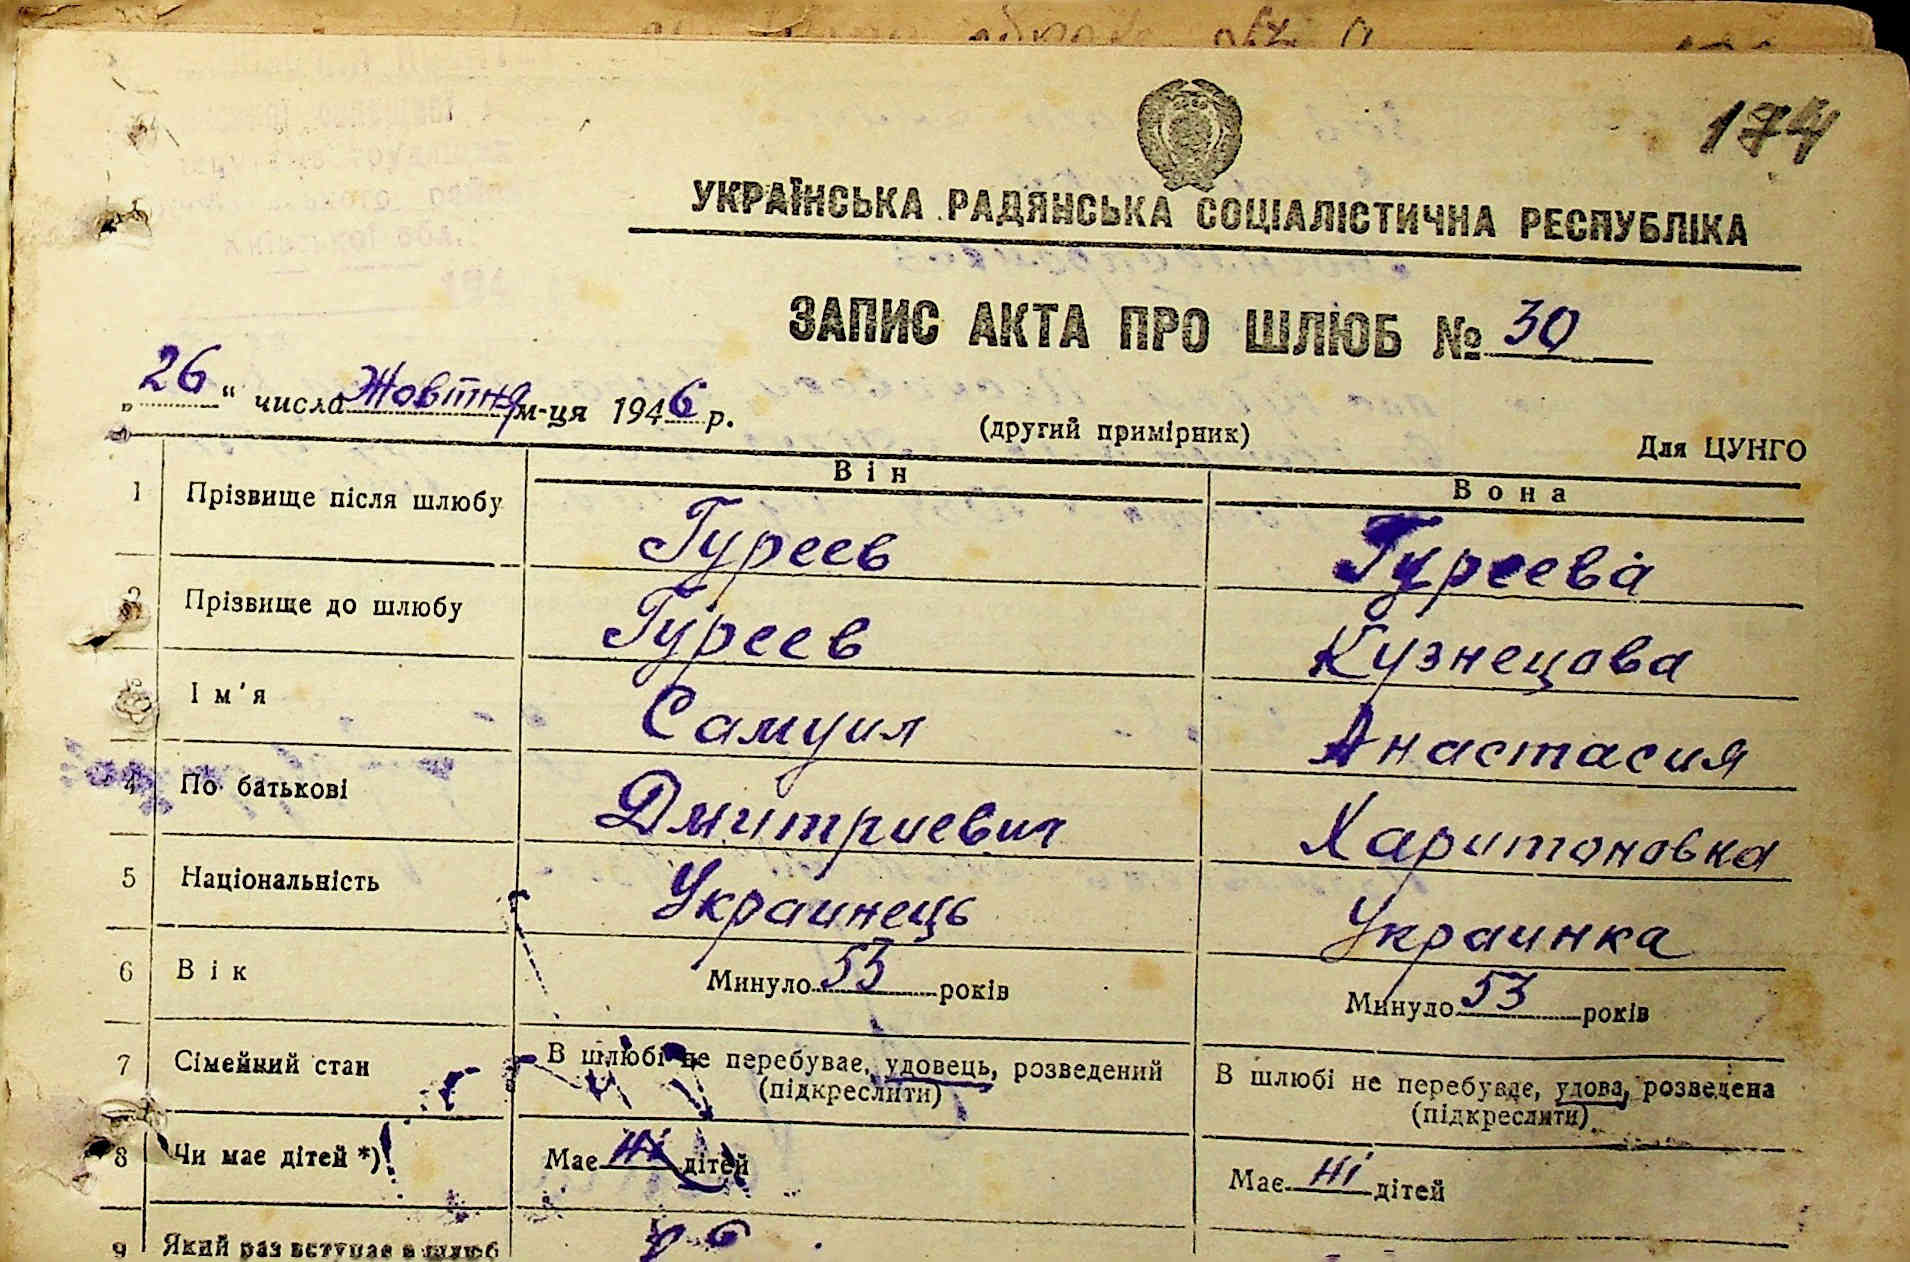 174
УКРАЇНСЬКА РАДЯНСЬКА СОЦІАЛІСТИЧНА РЕСПУБЛІКА
ЗАПИС АКТА ПРО ШЛЮБ № 30
„26“ числа Жовтня м-ця 1946 р.
(другий примірник)
Для ЦУНГО
Він Вона
1 Прізвище після шлюбу Гуреев Гуреева
2 Прізвище до шлюбу Гуреев Кузнецова
3 Ім'я Самуил Анастасия
4 По батькові Дмитриевич Харитоновна
5 Національність Украинець Украинка
6 Вік Минуло 53 років Минуло 53 років
7 Сімейний стан В шлюбі не перебуває, удовець, розведений В шлюбі не перебуває, удова, розведена
(підкреслити) (підкреслити)
8 Чи має дітей *) Має ні дітей Має ні дітей
9 Який раз вступає в шлюб